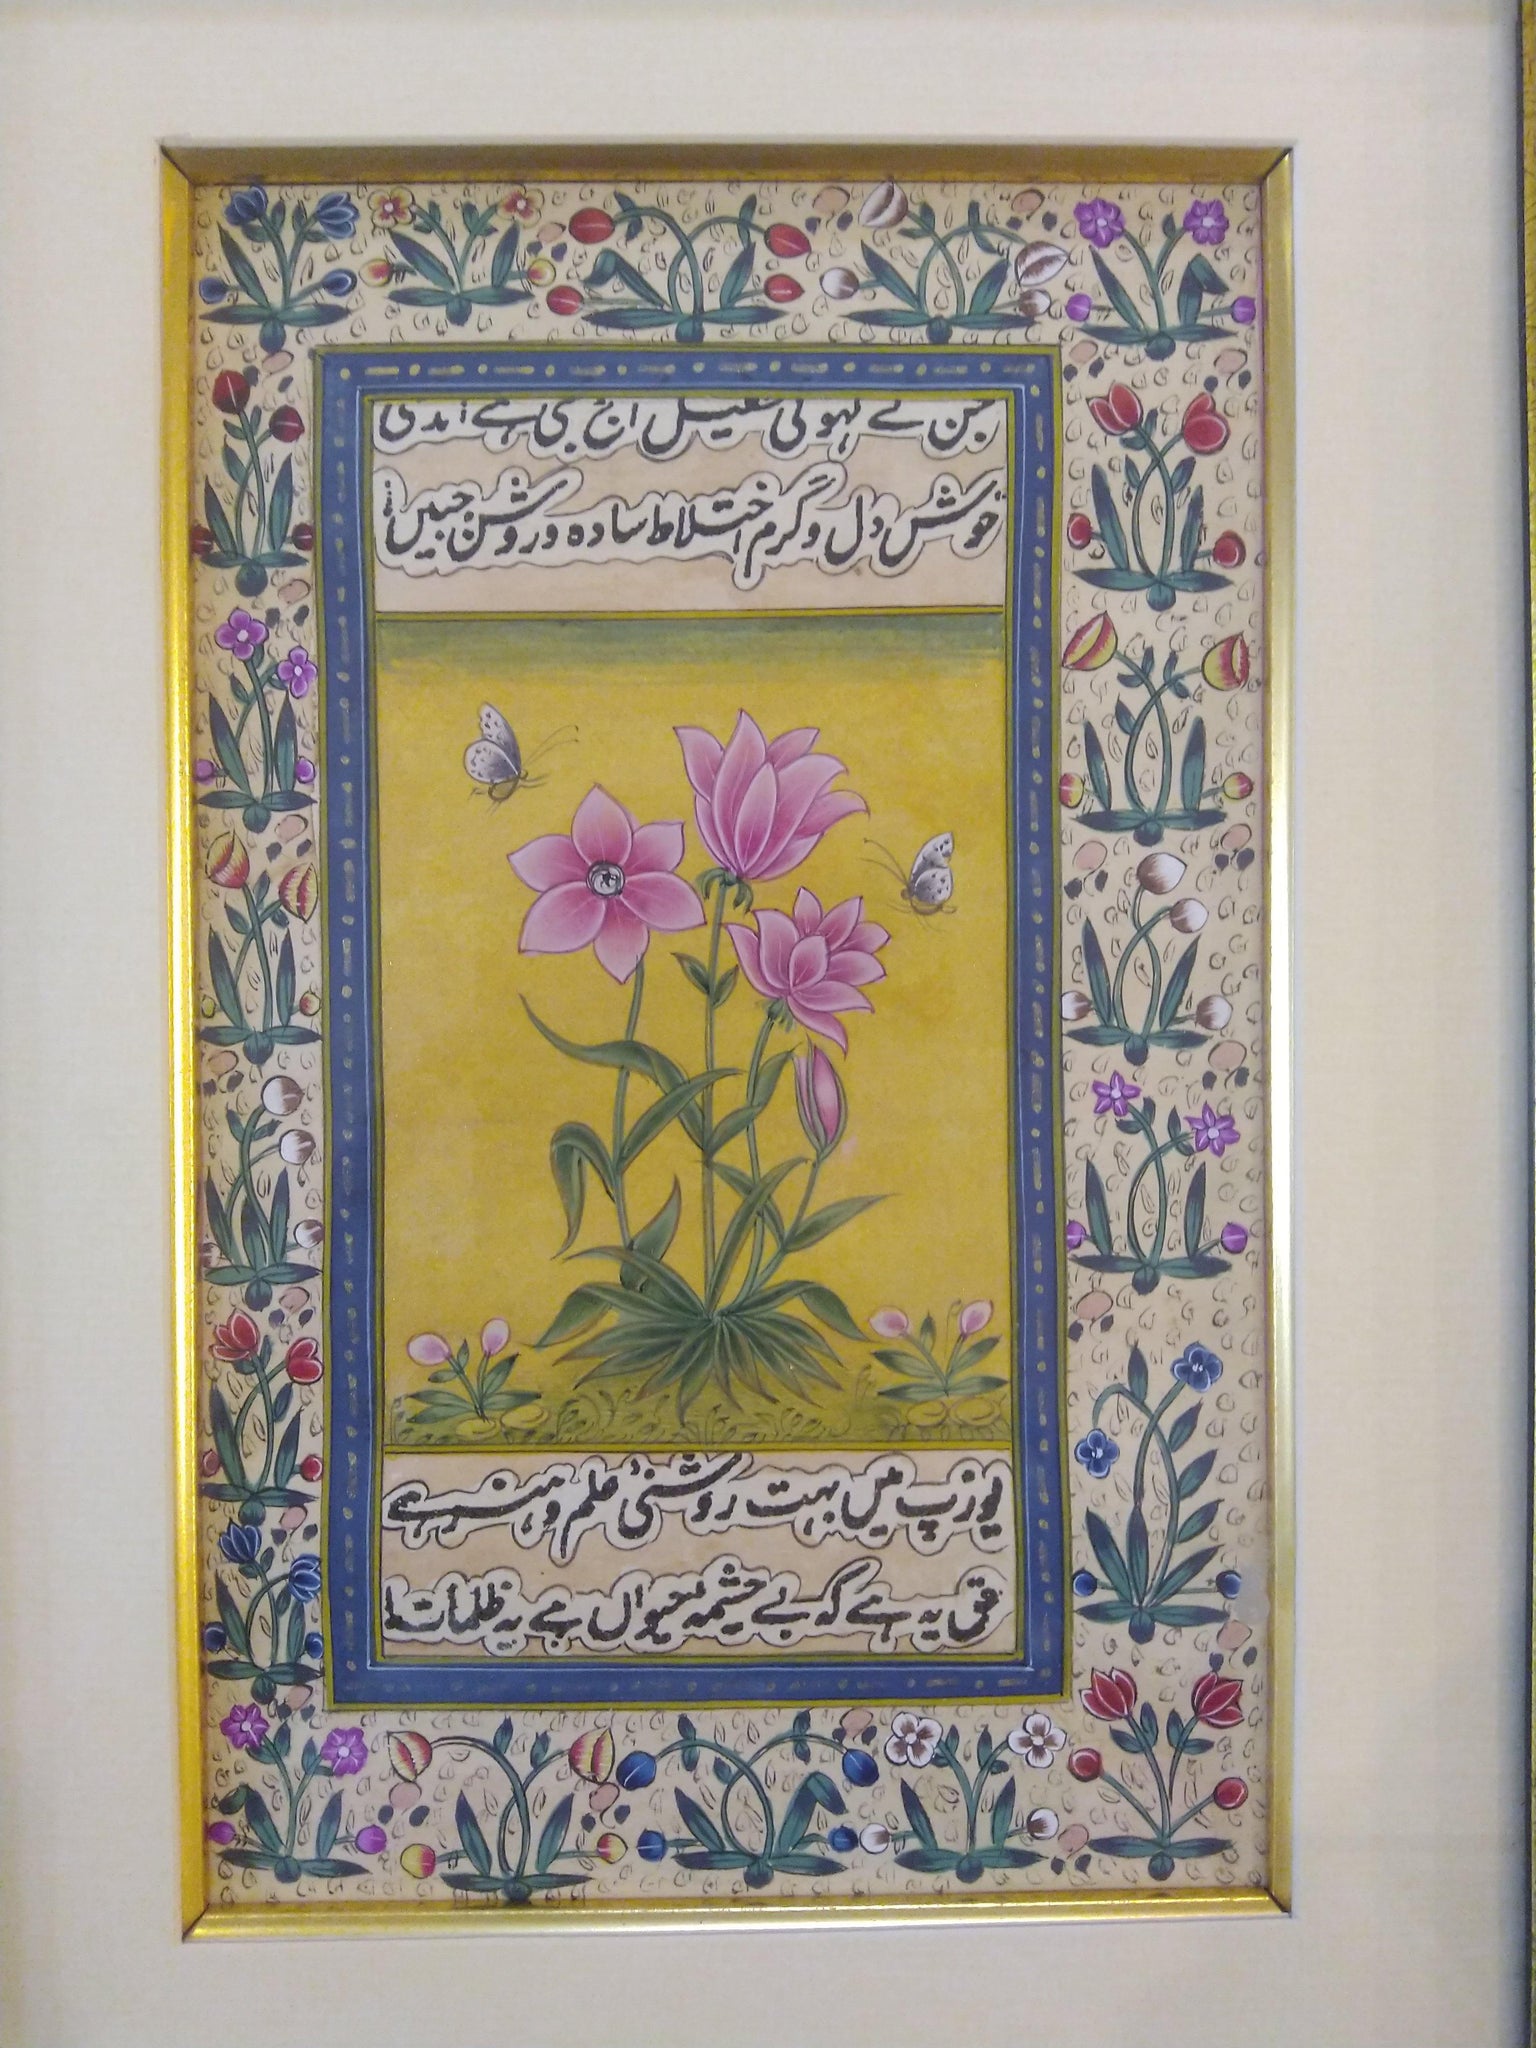 جن کے لہو کی طفیل آج بھی ہے
خوش دل و گرم اختلاط سادہ و روشن جبیں
یورپ میں بہت روشنی علم و ہنر ہے
یہ ہے کہ بے چشمہ حیواں ہے یہ ظلمات